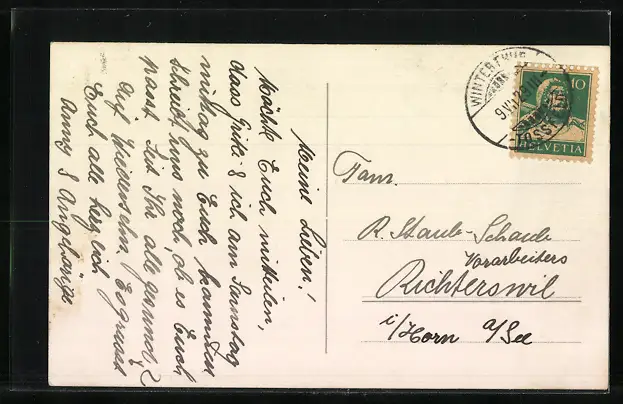 Meine Lieben!
Möchte Euch mitteilen,
dass Gritli & ich am Samstag
mittag zu Euch kommen
schreibt uns noch, ob es Euch
passt. Seid Ihr alle gesund?
Auf Wiedersehn. Es grüsst
Euch alle herzlich
Anny &
WINTERTHUR
TÖSS
10
HELVETIA
Fam.
R. Staub-Schaub
Vorarbeiters
Richterswil
i/Horn a/See